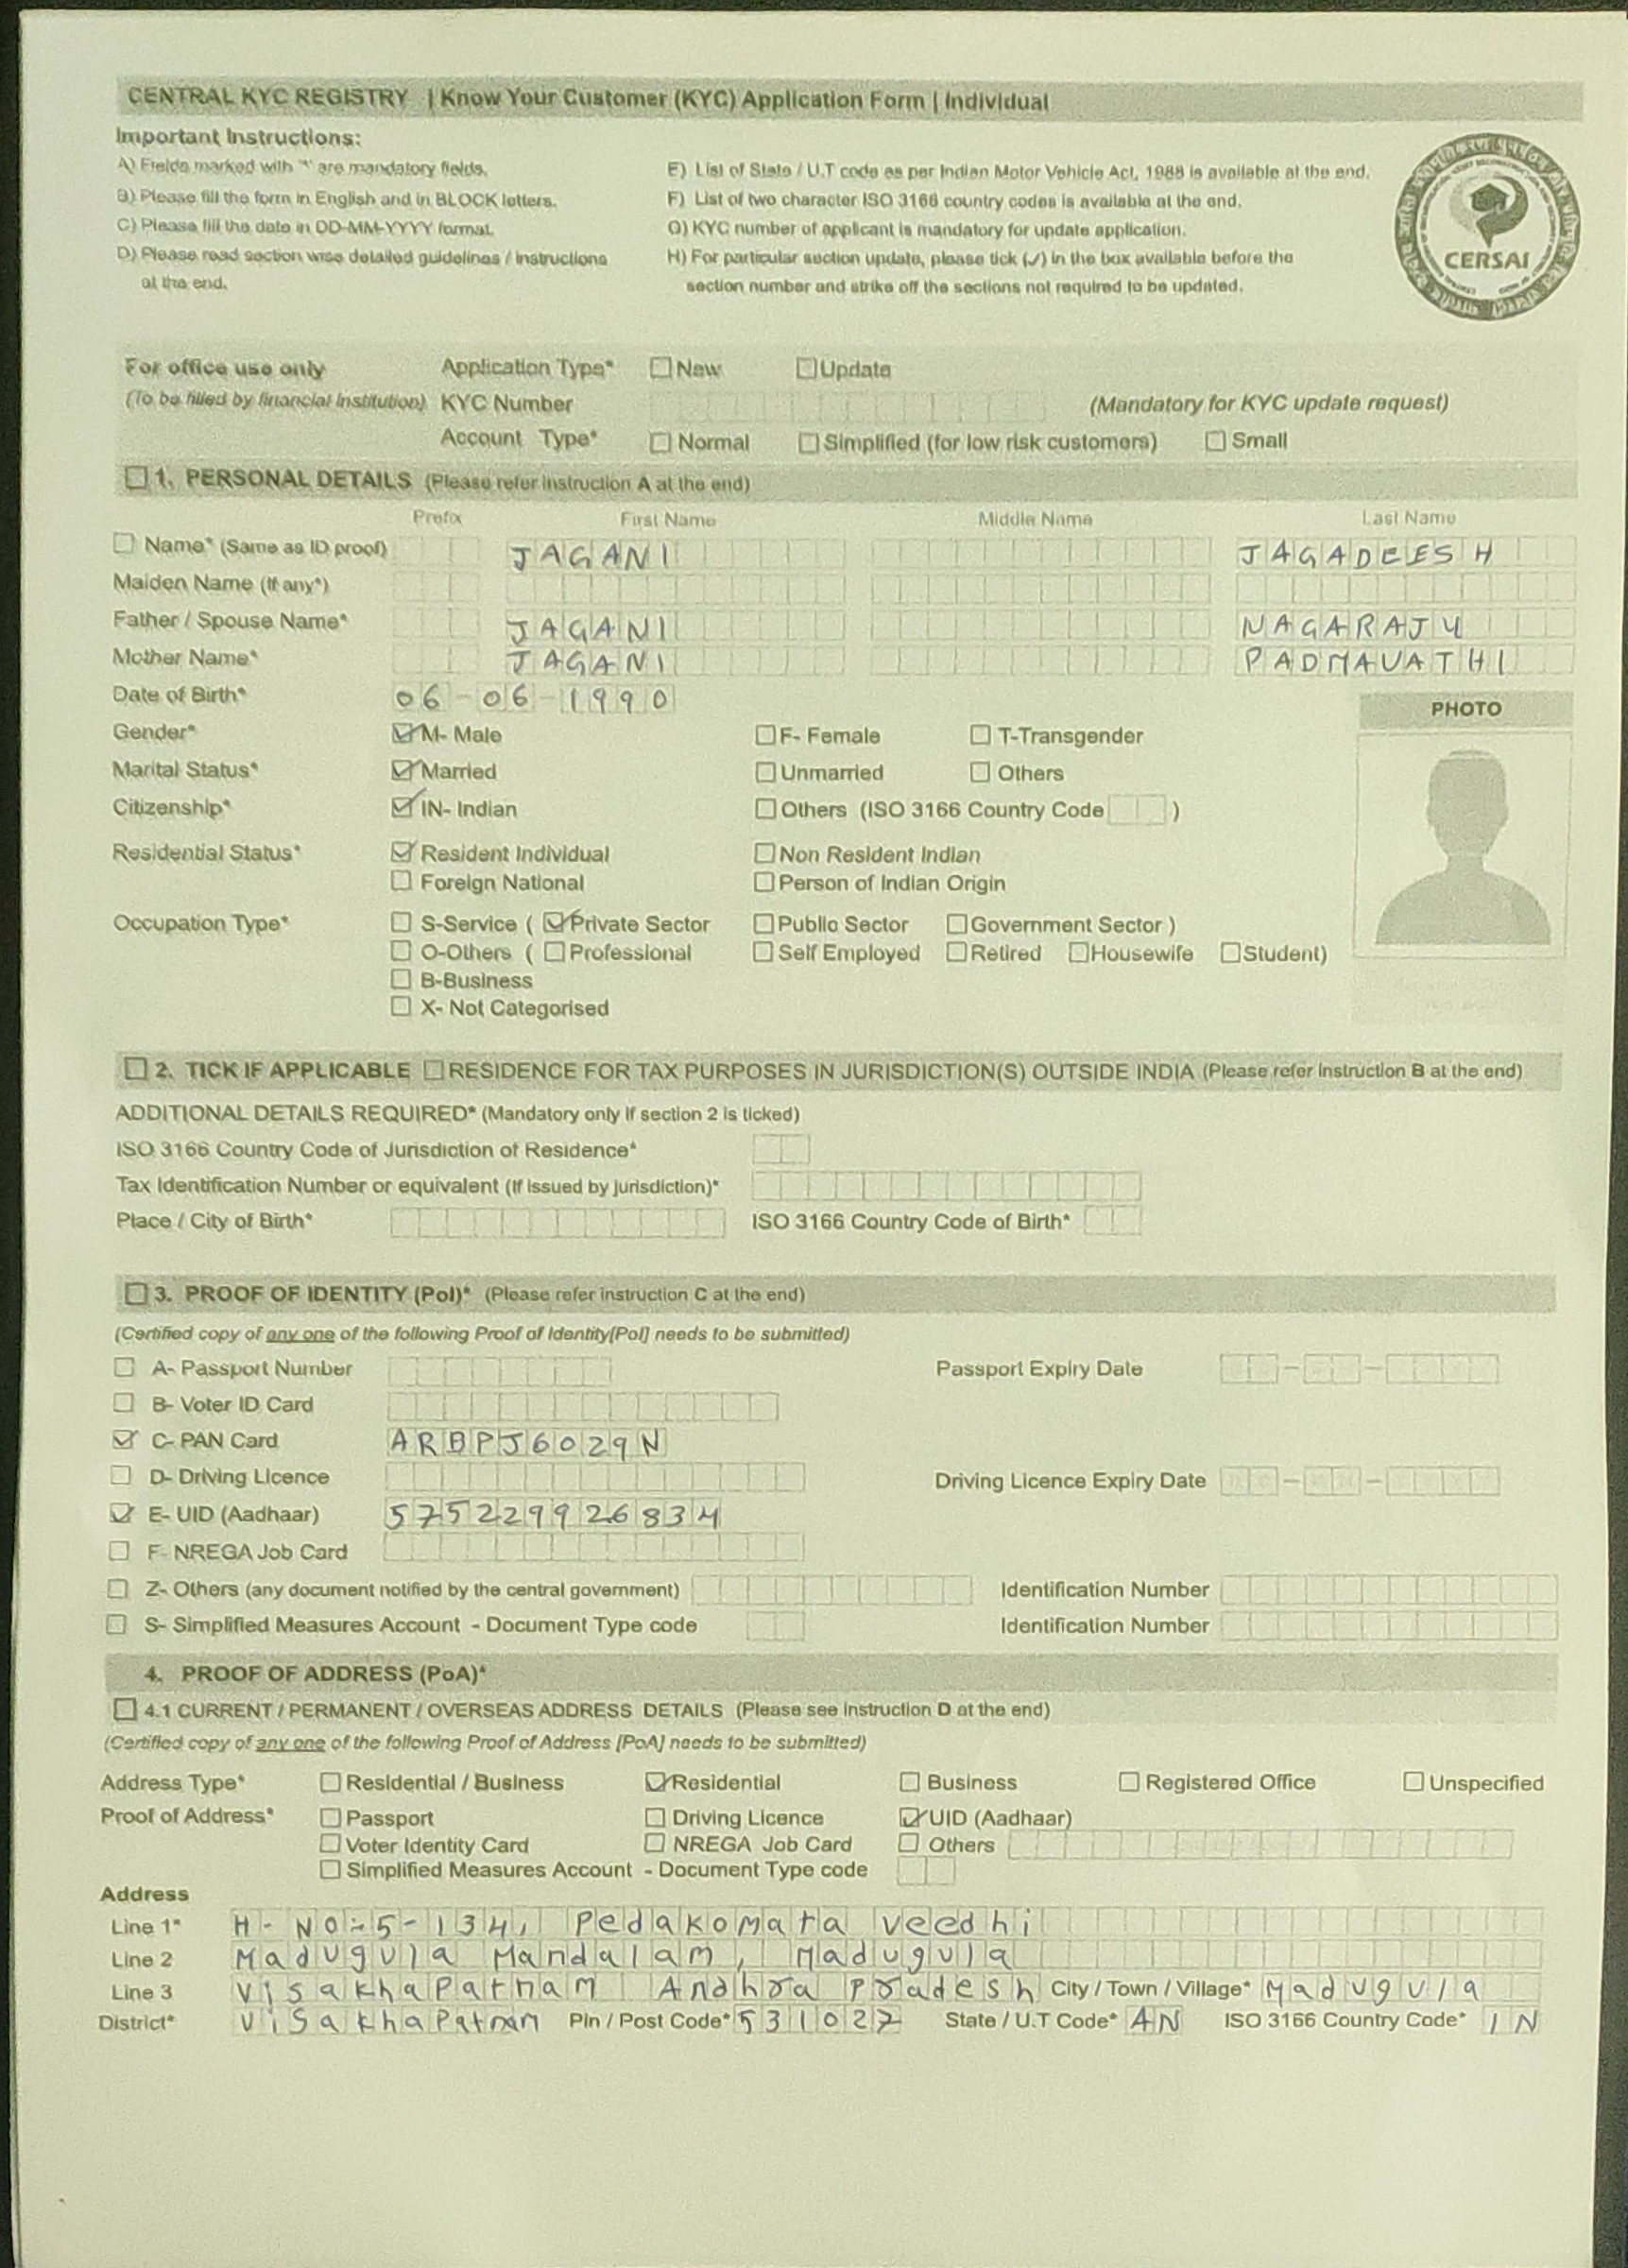 CENTRAL KYC REGISTRY | Know Your Customer (KYC) Application Form | Individual
Important Instructions:
A) Fields marked with '*' are mandatory fields.
B) Please fill the form in English and in BLOCK letters.
C) Please fill the date in DD-MM-YYYY format.
D) Please read section wise detailed guidelines / instructions
at the end.
E) List of State / U.T code as per Indian Motor Vehicle Act, 1988 is available at the end.
F) List of two character ISO 3166 country codes is available at the end.
G) KYC number of applicant is mandatory for update application.
H) For particular section update, please tick (✓) in the box available before the
section number and strike off the sections not required to be updated.
CERSAI
For office use only Application Type* New Update
(To be filled by financial institution) KYC Number (Mandatory for KYC update request)
Account Type* Normal Simplified (for low risk customers) Small
1. PERSONAL DETAILS (Please refer instruction A at the end)
Prefix First Name Middle Name Last Name
Name* (Same as ID proof) JAGANI JAGADEESH
Maiden Name (If any*)
Father / Spouse Name* JAGANI NAGARAJU
Mother Name* JAGANI PADMAVATHI
Date of Birth* 06-06-1990
PHOTO
Gender* M- Male F- Female T-Transgender
Marital Status* Married Unmarried Others
Citizenship* IN- Indian Others (ISO 3166 Country Code )
Residential Status* Resident Individual Non Resident Indian
Foreign National Person of Indian Origin
Occupation Type* S-Service ( Private Sector Public Sector Government Sector )
O-Others ( Professional Self Employed Retired Housewife Student)
B-Business
X- Not Categorised
2. TICK IF APPLICABLE RESIDENCE FOR TAX PURPOSES IN JURISDICTION(S) OUTSIDE INDIA (Please refer instruction B at the end)
ADDITIONAL DETAILS REQUIRED* (Mandatory only if section 2 is ticked)
ISO 3166 Country Code of Jurisdiction of Residence*
Tax Identification Number or equivalent (If issued by jurisdiction)*
Place / City of Birth* ISO 3166 Country Code of Birth*
3. PROOF OF IDENTITY (PoI)* (Please refer instruction C at the end)
(Certified copy of any one of the following Proof of Identity[PoI] needs to be submitted)
A- Passport Number Passport Expiry Date
B- Voter ID Card
C- PAN Card ARBPJ6029N
D- Driving Licence Driving Licence Expiry Date
E- UID (Aadhaar) 575229926834
F- NREGA Job Card
Z- Others (any document notified by the central government) Identification Number
S- Simplified Measures Account - Document Type code Identification Number
4. PROOF OF ADDRESS (PoA)*
4.1 CURRENT / PERMANENT / OVERSEAS ADDRESS DETAILS (Please see instruction D at the end)
(Certified copy of any one of the following Proof of Address [PoA] needs to be submitted)
Address Type* Residential / Business Residential Business Registered Office Unspecified
Proof of Address* Passport Driving Licence UID (Aadhaar)
Voter Identity Card NREGA Job Card Others
Simplified Measures Account - Document Type code
Address
Line 1* H- NO:-5-134, Pedakomata veedhi
Line 2 Madugula Mandalam, Madugula
Line 3 Visakhapatnam Andhra Pradesh City / Town / Village* Madugula
District* Visakhapatnam Pin / Post Code* 531027 State / U.T Code* AN ISO 3166 Country Code* IN